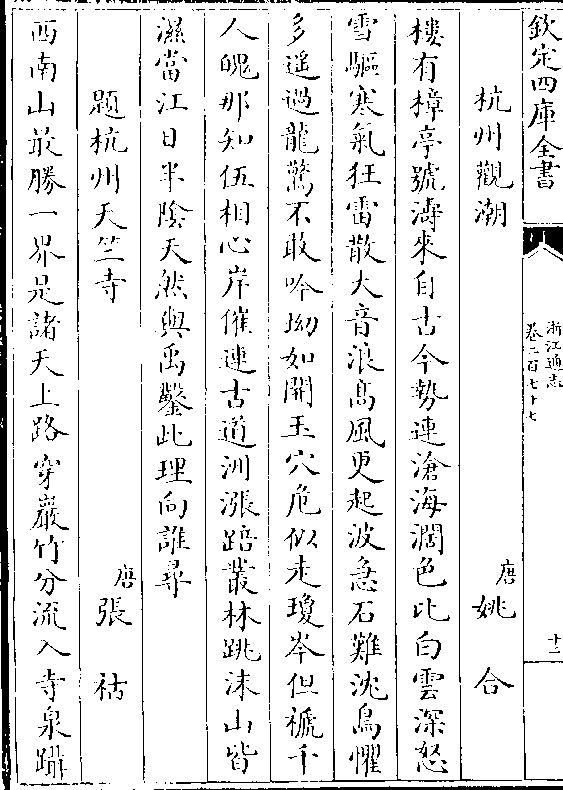 欽定四庫全書
浙江通志
卷二百七十七
十三
杭州觀潮
唐姚合
樓有樟亭號濤來自古今勢連滄海濶色比白雲深怒
雪驅寒氣狂雷散大音浪高風更起波急石難沈鳥懼
多遥過龍驚不敢吟坳如開玉穴危似走瓊岑但褫千
人魄那知伍相心岸傕連古道洲漲踣叢林跳沫山皆
濕當江日半陰天然與禹鑿此理向誰尋
題杭州天竺寺
唐張祜
西南山最勝一界是諸天上路穿巖竹分流入寺泉躡